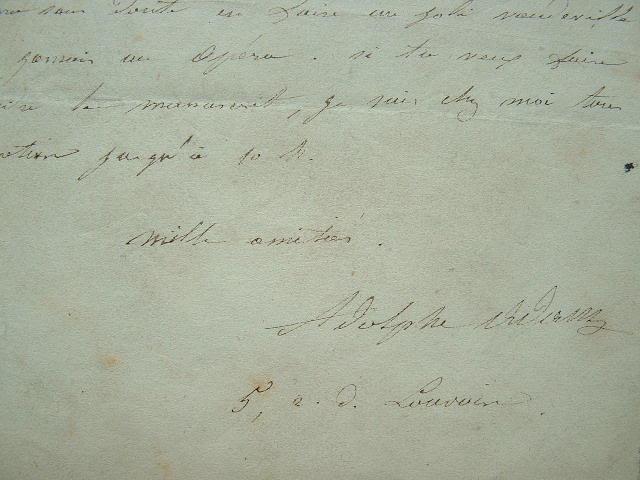 sans doute en faire un joli vaudeville
jamais un opéra. si tu veux faire
le manuscrit, je suis chez moi tous
jusqu'à 10 h.
mille amitiés.
Adolphe
5, r. d. Louvois